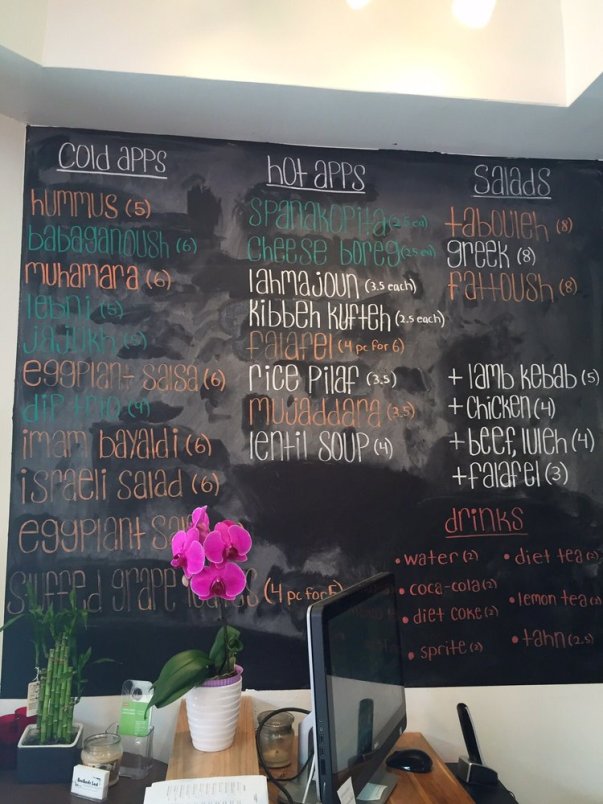 cold apps
hummus (5)
babaganoush (6)
muhamara (6)
lebni (5)
jajukh (5)
eggplant salsa (6)
dip trio (9)
imam bayaldi (6)
israeli salad (6)
eggplant
stuffed grape leaves (4 pc for 5
hot apps
spanakopita (2.5 ea)
cheese boreg (2.5 ea)
lahmajoun (3.5 each)
kibbeh kufteh (2.5 each)
falafel (4 pc for 6)
rice pilaf (3.5)
mujaddara (3.5)
lentil soup (4)
salads
tabouleh (8)
greek (8)
fattoush (8)
+ lamb kebab (5)
+ chicken (4)
+ beef, luleh (4)
+ falafel (3)
drinks
• water (2)
• coca-cola (2)
• diet coke (2)
• sprite (2)
• diet tea (2)
• lemon tea (2)
• tahn (2.5)